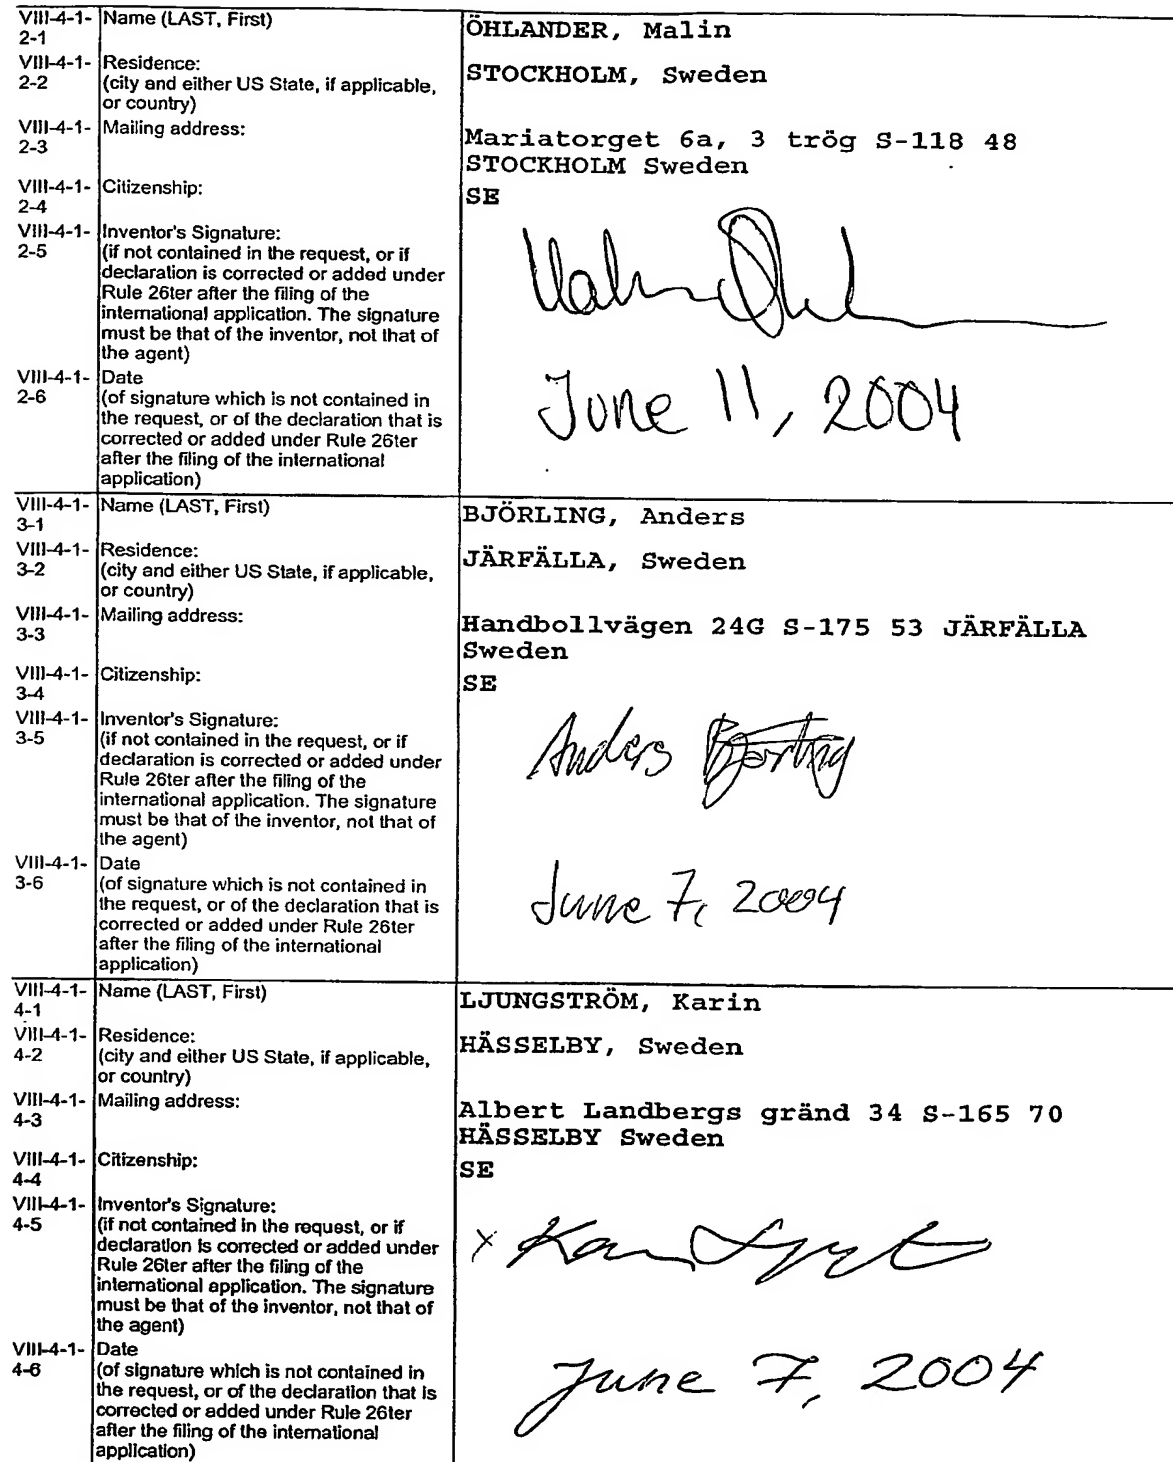 VIII-4-1-2-1 Name (LAST, First) ÖHLANDER, Malin
VIII-4-1-2-2 Residence: STOCKHOLM, Sweden
(city and either US State, if applicable,
or country)
VIII-4-1-2-3 Mailing address: Mariatorget 6a, 3 trög S-118 48
STOCKHOLM Sweden
VIII-4-1-2-4 Citizenship: SE
VIII-4-1-2-5 Inventor's Signature:
(if not contained in the request, or if
declaration is corrected or added under
Rule 26ter after the filing of the
international application. The signature
must be that of the inventor, not that of
the agent)
VIII-4-1-2-6 Date June 11, 2004
(of signature which is not contained in
the request, or of the declaration that is
corrected or added under Rule 26ter
after the filing of the international
application)
VIII-4-1-3-1 Name (LAST, First) BJÖRLING, Anders
VIII-4-1-3-2 Residence: JÄRFÄLLA, Sweden
(city and either US State, if applicable,
or country)
VIII-4-1-3-3 Mailing address: Handbollvägen 24G S-175 53 JÄRFÄLLA
Sweden
VIII-4-1-3-4 Citizenship: SE
VIII-4-1-3-5 Inventor's Signature: Anders Björling
(if not contained in the request, or if
declaration is corrected or added under
Rule 26ter after the filing of the
international application. The signature
must be that of the inventor, not that of
the agent)
VIII-4-1-3-6 Date June 7, 2004
(of signature which is not contained in
the request, or of the declaration that is
corrected or added under Rule 26ter
after the filing of the international
application)
VIII-4-1-4-1 Name (LAST, First) LJUNGSTRÖM, Karin
VIII-4-1-4-2 Residence: HÄSSELBY, Sweden
(city and either US State, if applicable,
or country)
VIII-4-1-4-3 Mailing address: Albert Landbergs gränd 34 S-165 70
HÄSSELBY Sweden
VIII-4-1-4-4 Citizenship: SE
VIII-4-1-4-5 Inventor's Signature: x
(if not contained in the request, or if
declaration is corrected or added under
Rule 26ter after the filing of the
international application. The signature
must be that of the inventor, not that of
the agent)
VIII-4-1-4-6 Date June 7, 2004
(of signature which is not contained in
the request, or of the declaration that is
corrected or added under Rule 26ter
after the filing of the international
application)